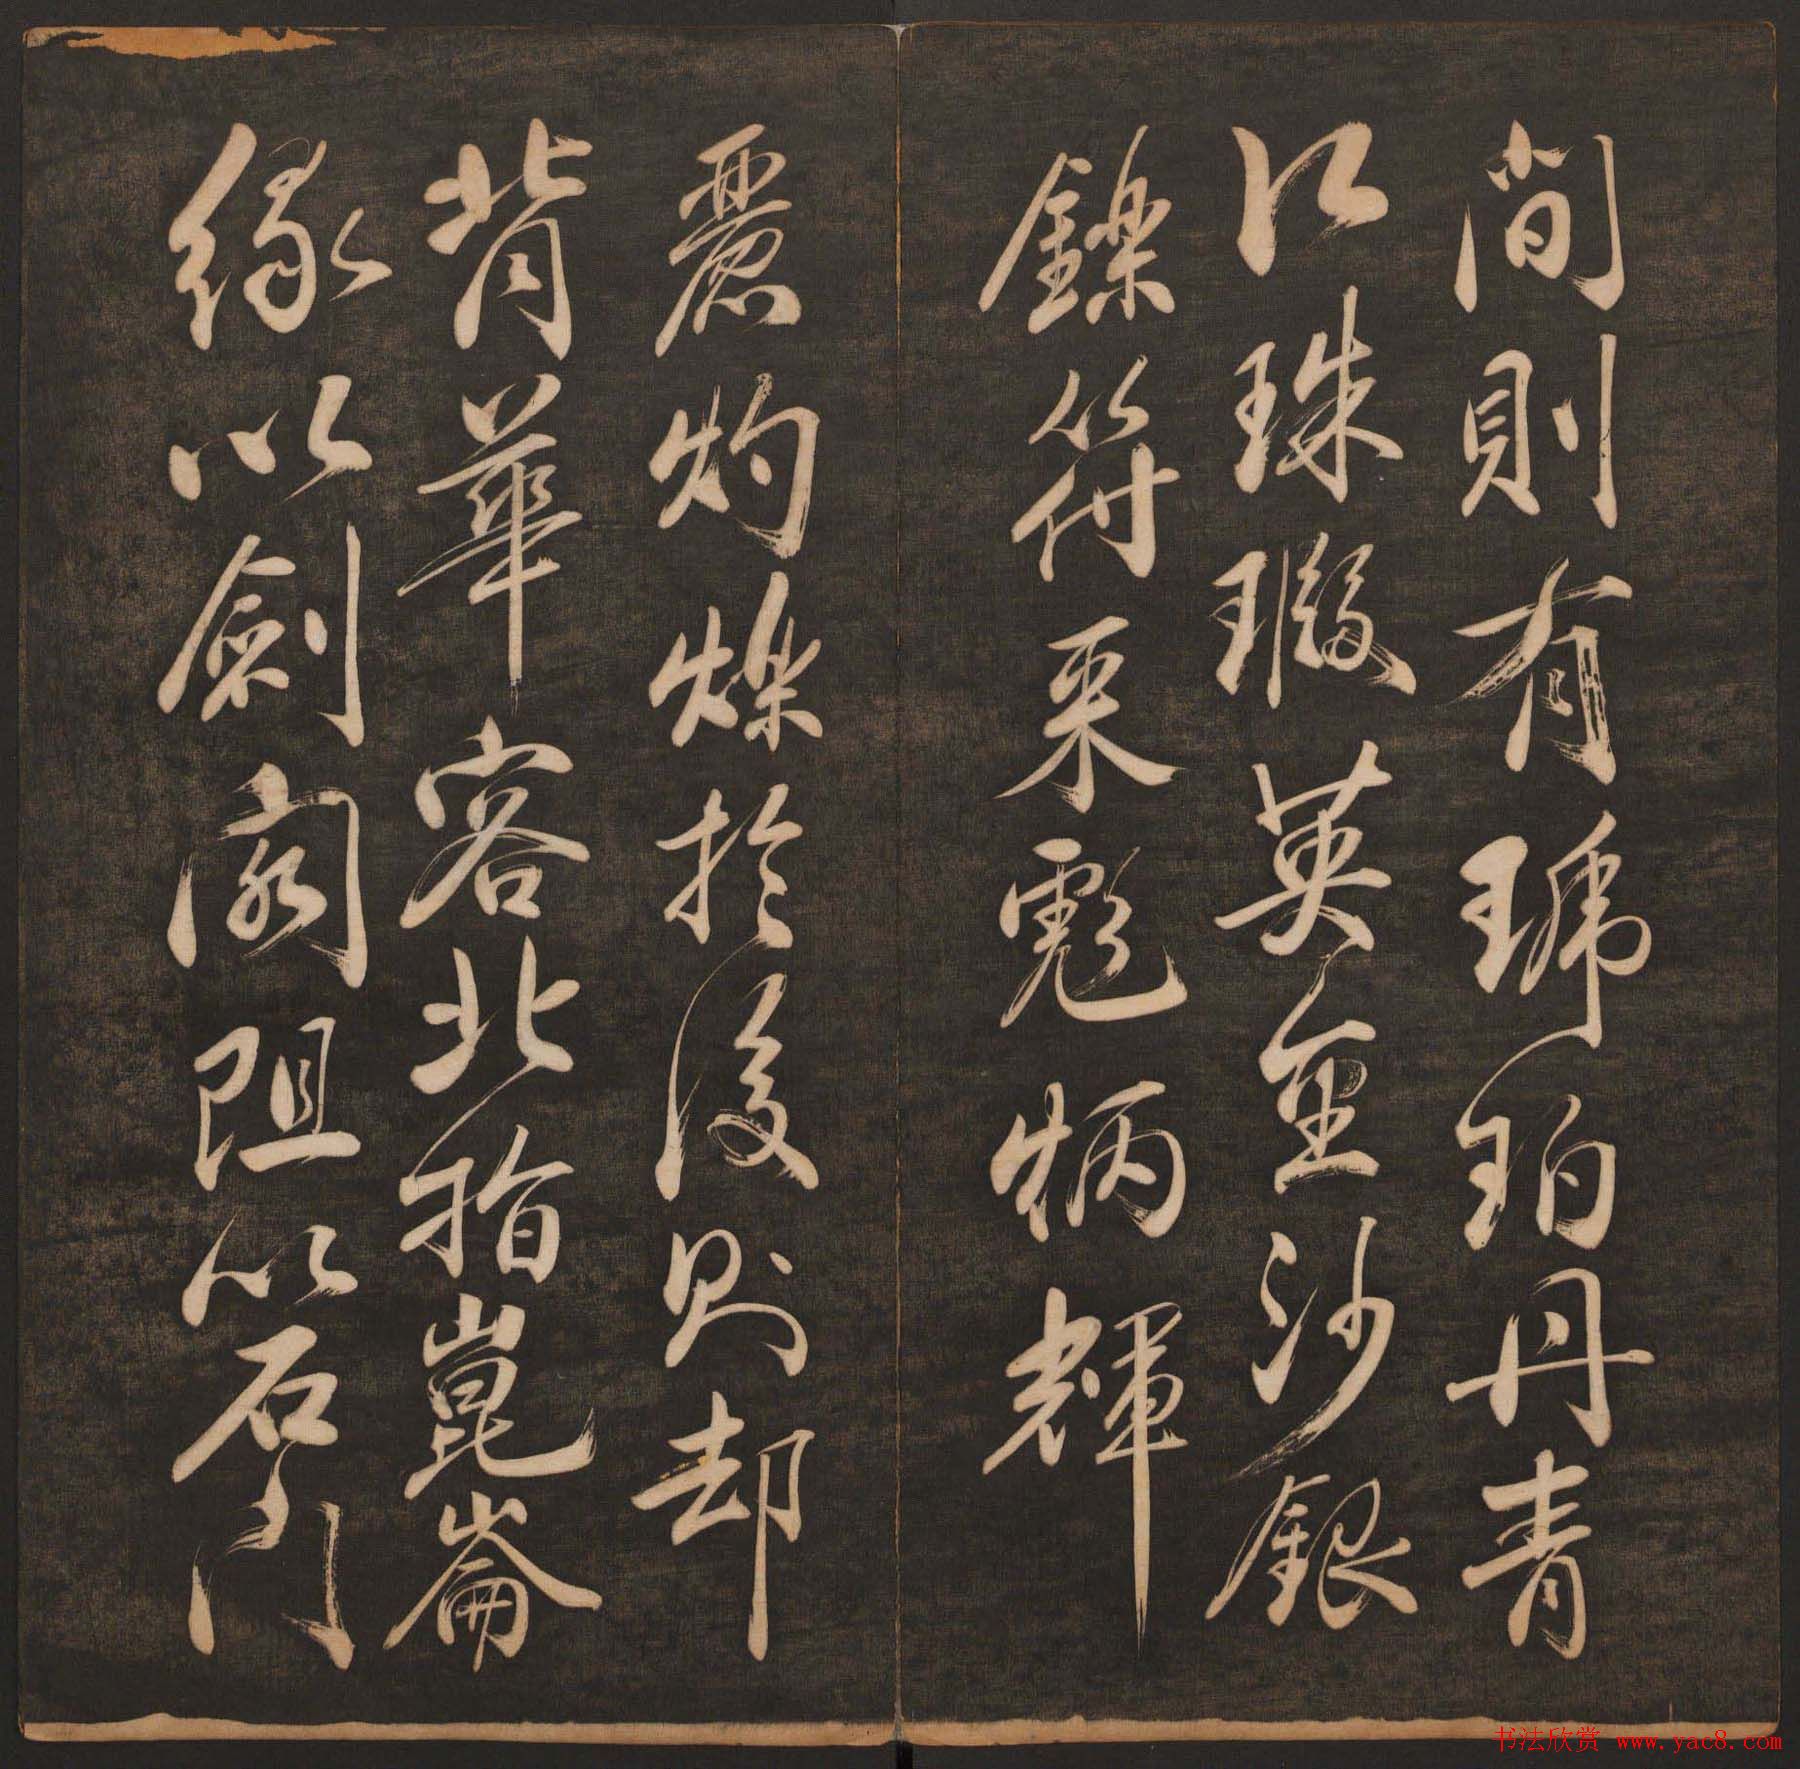 間則有琥珀丹青
江珠瑕英金沙銀
鑠符采彪炳輝
麗灼爍於後則却
背華容北指崑崙
緣以劍閣阻以石門
书法欣赏 www.yac8.com